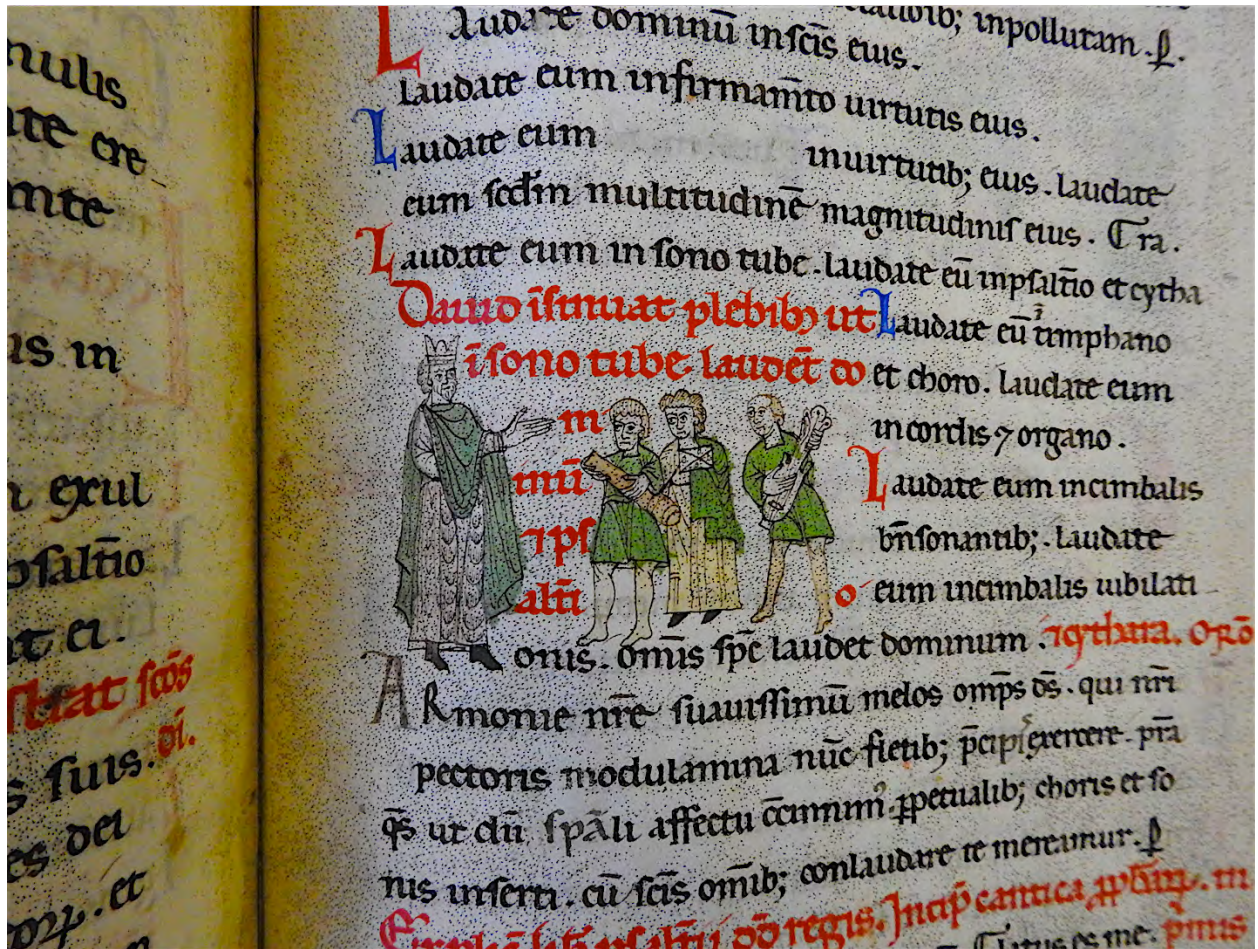 nulis
ere
mte
us in
exul
psaltıo
at ei.
scōs
suis. dī.
es dei
et
inpollutam . P.
Laudate dominū in sc̄is eius.
Laudate eum in firmam̄to uirtutis eius.
Laudate eum inuirtutib; eius . Laudate
eum scd̄m multitudinē magnitudinis eius . Tra.
Laudate eum in sono tube . laudate eū inpsalt̄io et cytha
Dauid īsinuat plebib; ut Laudate eū ī timphano
ī sono tube laudēt do et choro . laudate eum
m incordis ⁊ organo .
Laudate eum incimbalis
nū bn̄sonantib; . Laudate
⁊ ps
alt̄i o eum incimbalis iubilati
onis . om̄is sp̄c laudet dominum . ⁊ cythara. Orō
ARmonie nr̄e suauissimū melos om̄ps d̄s . qui nr̄i
pectoris modulamina nūc fletib; p̄cipis exercere . p̄ra
q̄s ut dū sp̄āli affectu ꝑpetualib; choris et so
nis inserti . cū sc̄is om̄ib; conlaudare te mereamur . P
regis. Incip̄ cantica in